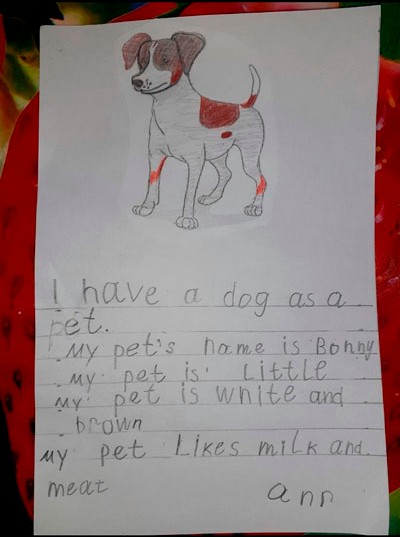 I have a dog as a
pet.
My pet's name is Bonny
my pet is little
my pet is white and
brown
my pet likes milk and
meat
ann